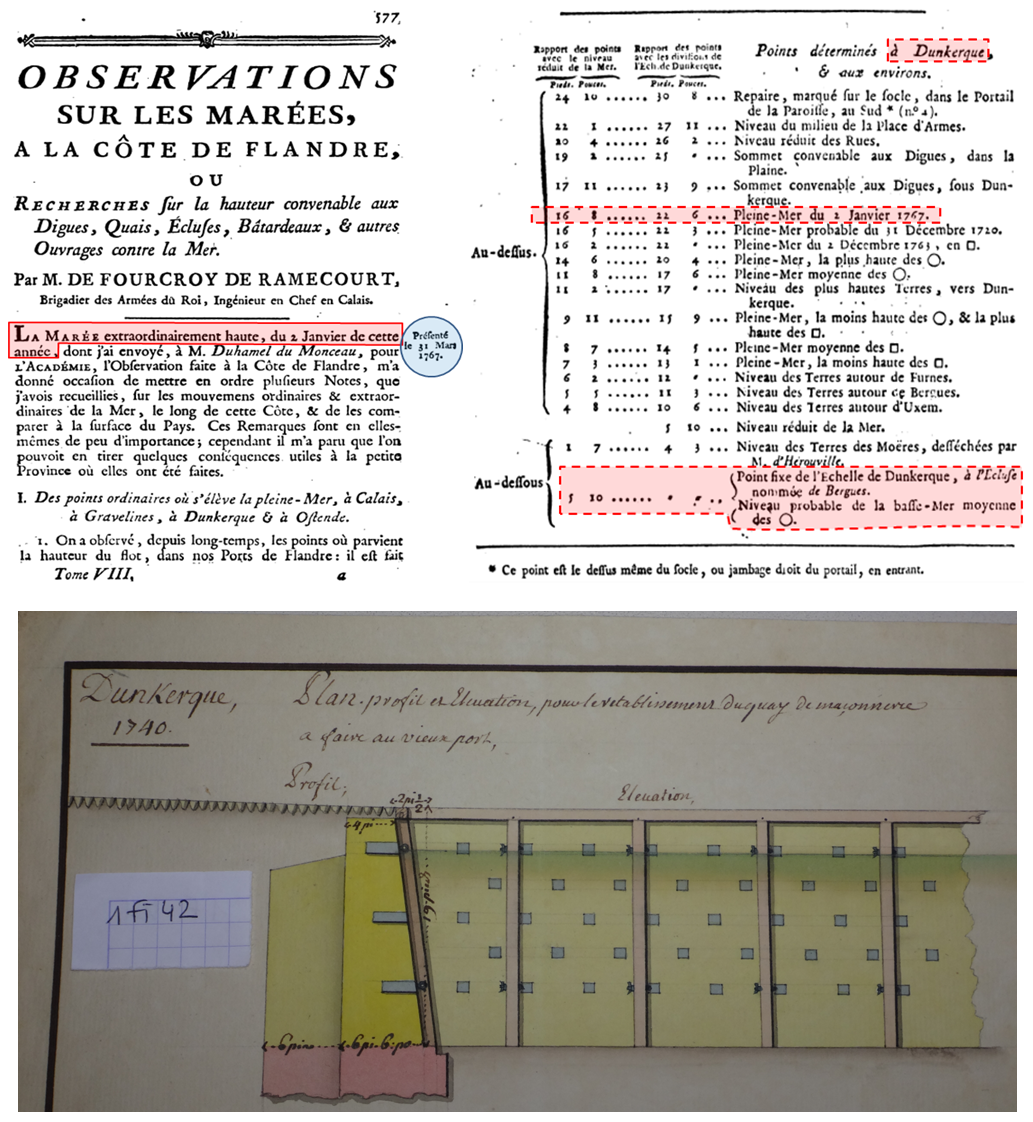 577
OBSERVATIONS
SUR LES MARÉES,
A LA CÔTE DE FLANDRE,
OU
RECHERCHES ſur la hauteur convenable aux
Digues, Quais, Écluſes, Bâtardeaux, & autres
Ouvrages contre la Mer.
Par M. DE FOURCROY DE RAMECOURT,
Brigadier des Armées dû Roi, Ingénieur en Chef en Calais.
LA MARÉE extraordinairement haute, du 2 Janvier de cette
année, dont j'ai envoyé, à M. Duhamel du Monceau, pour
l'ACADÉMIE, l'Obſervation faite à la Côte de Flandre, m'a
donné occaſion de mettre en ordre pluſieurs Notes, que
j'avois recueillies, ſur les mouvemens ordinaires & extraor-
dinaires de la Mer, le long de cette Côte, & de les com-
parer à la ſurface du Pays. Ces Remarques ſont en elles-
mêmes de peu d'importance; cependant il m'a paru que l'on
pouvoit en tirer quelques conſéquences utiles à la petite
Province où elles ont été faites.
Préſenté
le 31 Mars
1767.
I. Des points ordinaires où s'élève la pleine-Mer, à Calais,
à Gravelines, à Dunkerque & à Oſtende.
1. On a obſervé, depuis long-temps, les points où parvient
la hauteur du flot, dans nos Ports de Flandre: il eſt fait
Tome VIII, a
Rapport des points avec le niveau réduit de la Mer.
Rapport des points avec les diviſions de l'Ech. de Dunkerque.
Points déterminés à Dunkerque,
& aux environs.
Pieds. Pouces. Pieds. Pouces.
Au-deſſus.
24 10 ...... 30 8 ... Repaire, marqué ſur le ſocle, dans le Portail
de la Paroiſſe, au Sud * (n.º 4).
22 1 ...... 27 11 ... Niveau du milieu de la Place d'Armes.
20 4 ...... 26 2 ... Niveau réduit des Rues.
19 2 ...... 25 " ... Sommet convenable aux Digues, dans la
Plaine.
17 11 ...... 23 9 ... Sommet convenable aux Digues, ſous Dun-
kerque.
16 8 ...... 22 6 ... Pleine-Mer du 2 Janvier 1767.
16 5 ...... 22 3 ... Pleine-Mer probable du 31 Décembre 1720.
16 2 ...... 22 " ... Pleine-Mer du 2 Décembre 1763, en □.
14 6 ...... 20 4 ... Pleine-Mer, la plus haute des ○.
11 8 ...... 17 6 ... Pleine-Mer moyenne des ○.
11 2 ...... 17 " ... Niveau des plus hautes Terres, vers Dun-
kerque.
9 11 ...... 15 9 ... Pleine-Mer, la moins haute des ○, & la plus
haute des □.
8 7 ...... 14 5 ... Pleine-Mer moyenne des □.
7 3 ...... 13 1 ... Pleine-Mer, la moins haute des □.
6 2 ...... 12 " ... Niveau des Terres autour de Furnes.
5 5 ...... 11 3 ... Niveau des Terres autour de Bergues.
4 8 ...... 10 6 ... Niveau des Terres autour d'Uxem.
5 10 ... Niveau réduit de la Mer.
Au-deſſous
1 7 ...... 4 3 ... Niveau des Terres des Moëres, deſſéchées par
M. d'Hérouville.
5 10 ...... " " ... Point fixe de l'Echelle de Dunkerque, à l'Ecluſe
nommée de Bergues.
Niveau probable de la baſſe-Mer moyenne
des ○.
* Ce point eſt le deſſus même du ſocle, ou jambage droit du portail, en entrant.
Dunkerque, Plan. profil et Elevation, pour le retablissement du quay de maçonnerie
1740. a faire au vieux port,
Profil; Elevation,
2 pi 1/2
4 pi
19 pieds
1 Fi 42
6 pieds 6 pi 6 po